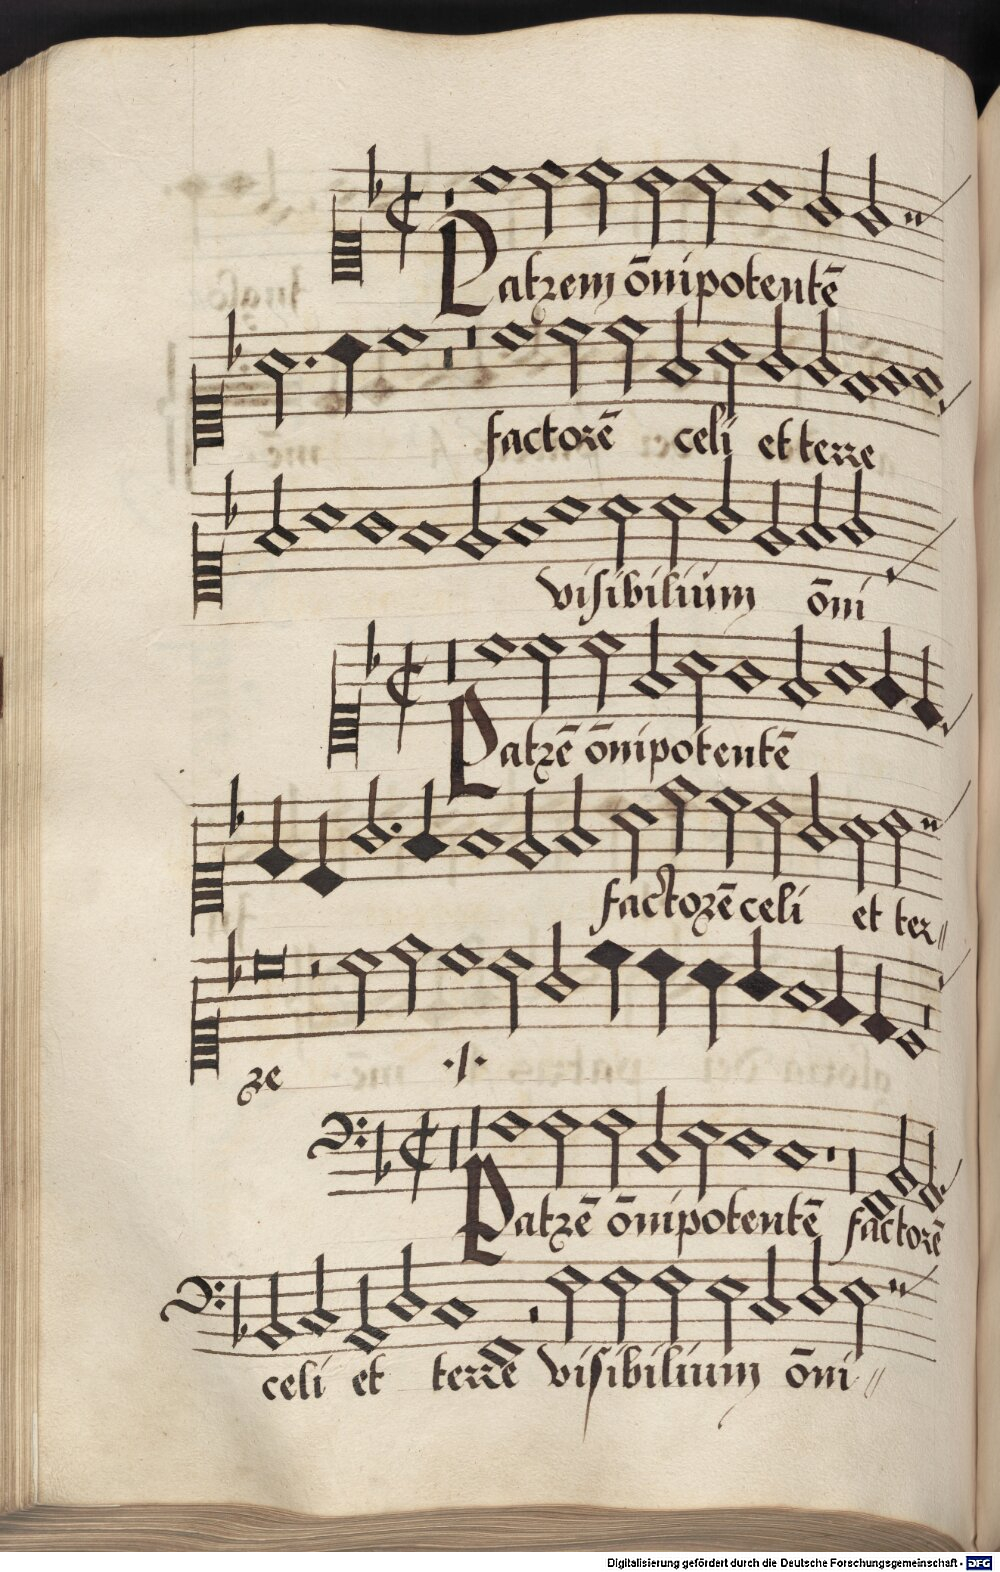 Patrem ōnipotentē
factorē celi et terre
visibilium ōni
Patrē ōnipotentē
factorē celi et ter//
re ·/·
Patrē ōnipotentē factorē
celi et terre visibilium ōni//
Digitalisierung gefördert durch die Deutsche Forschungsgemeinschaft - DFG